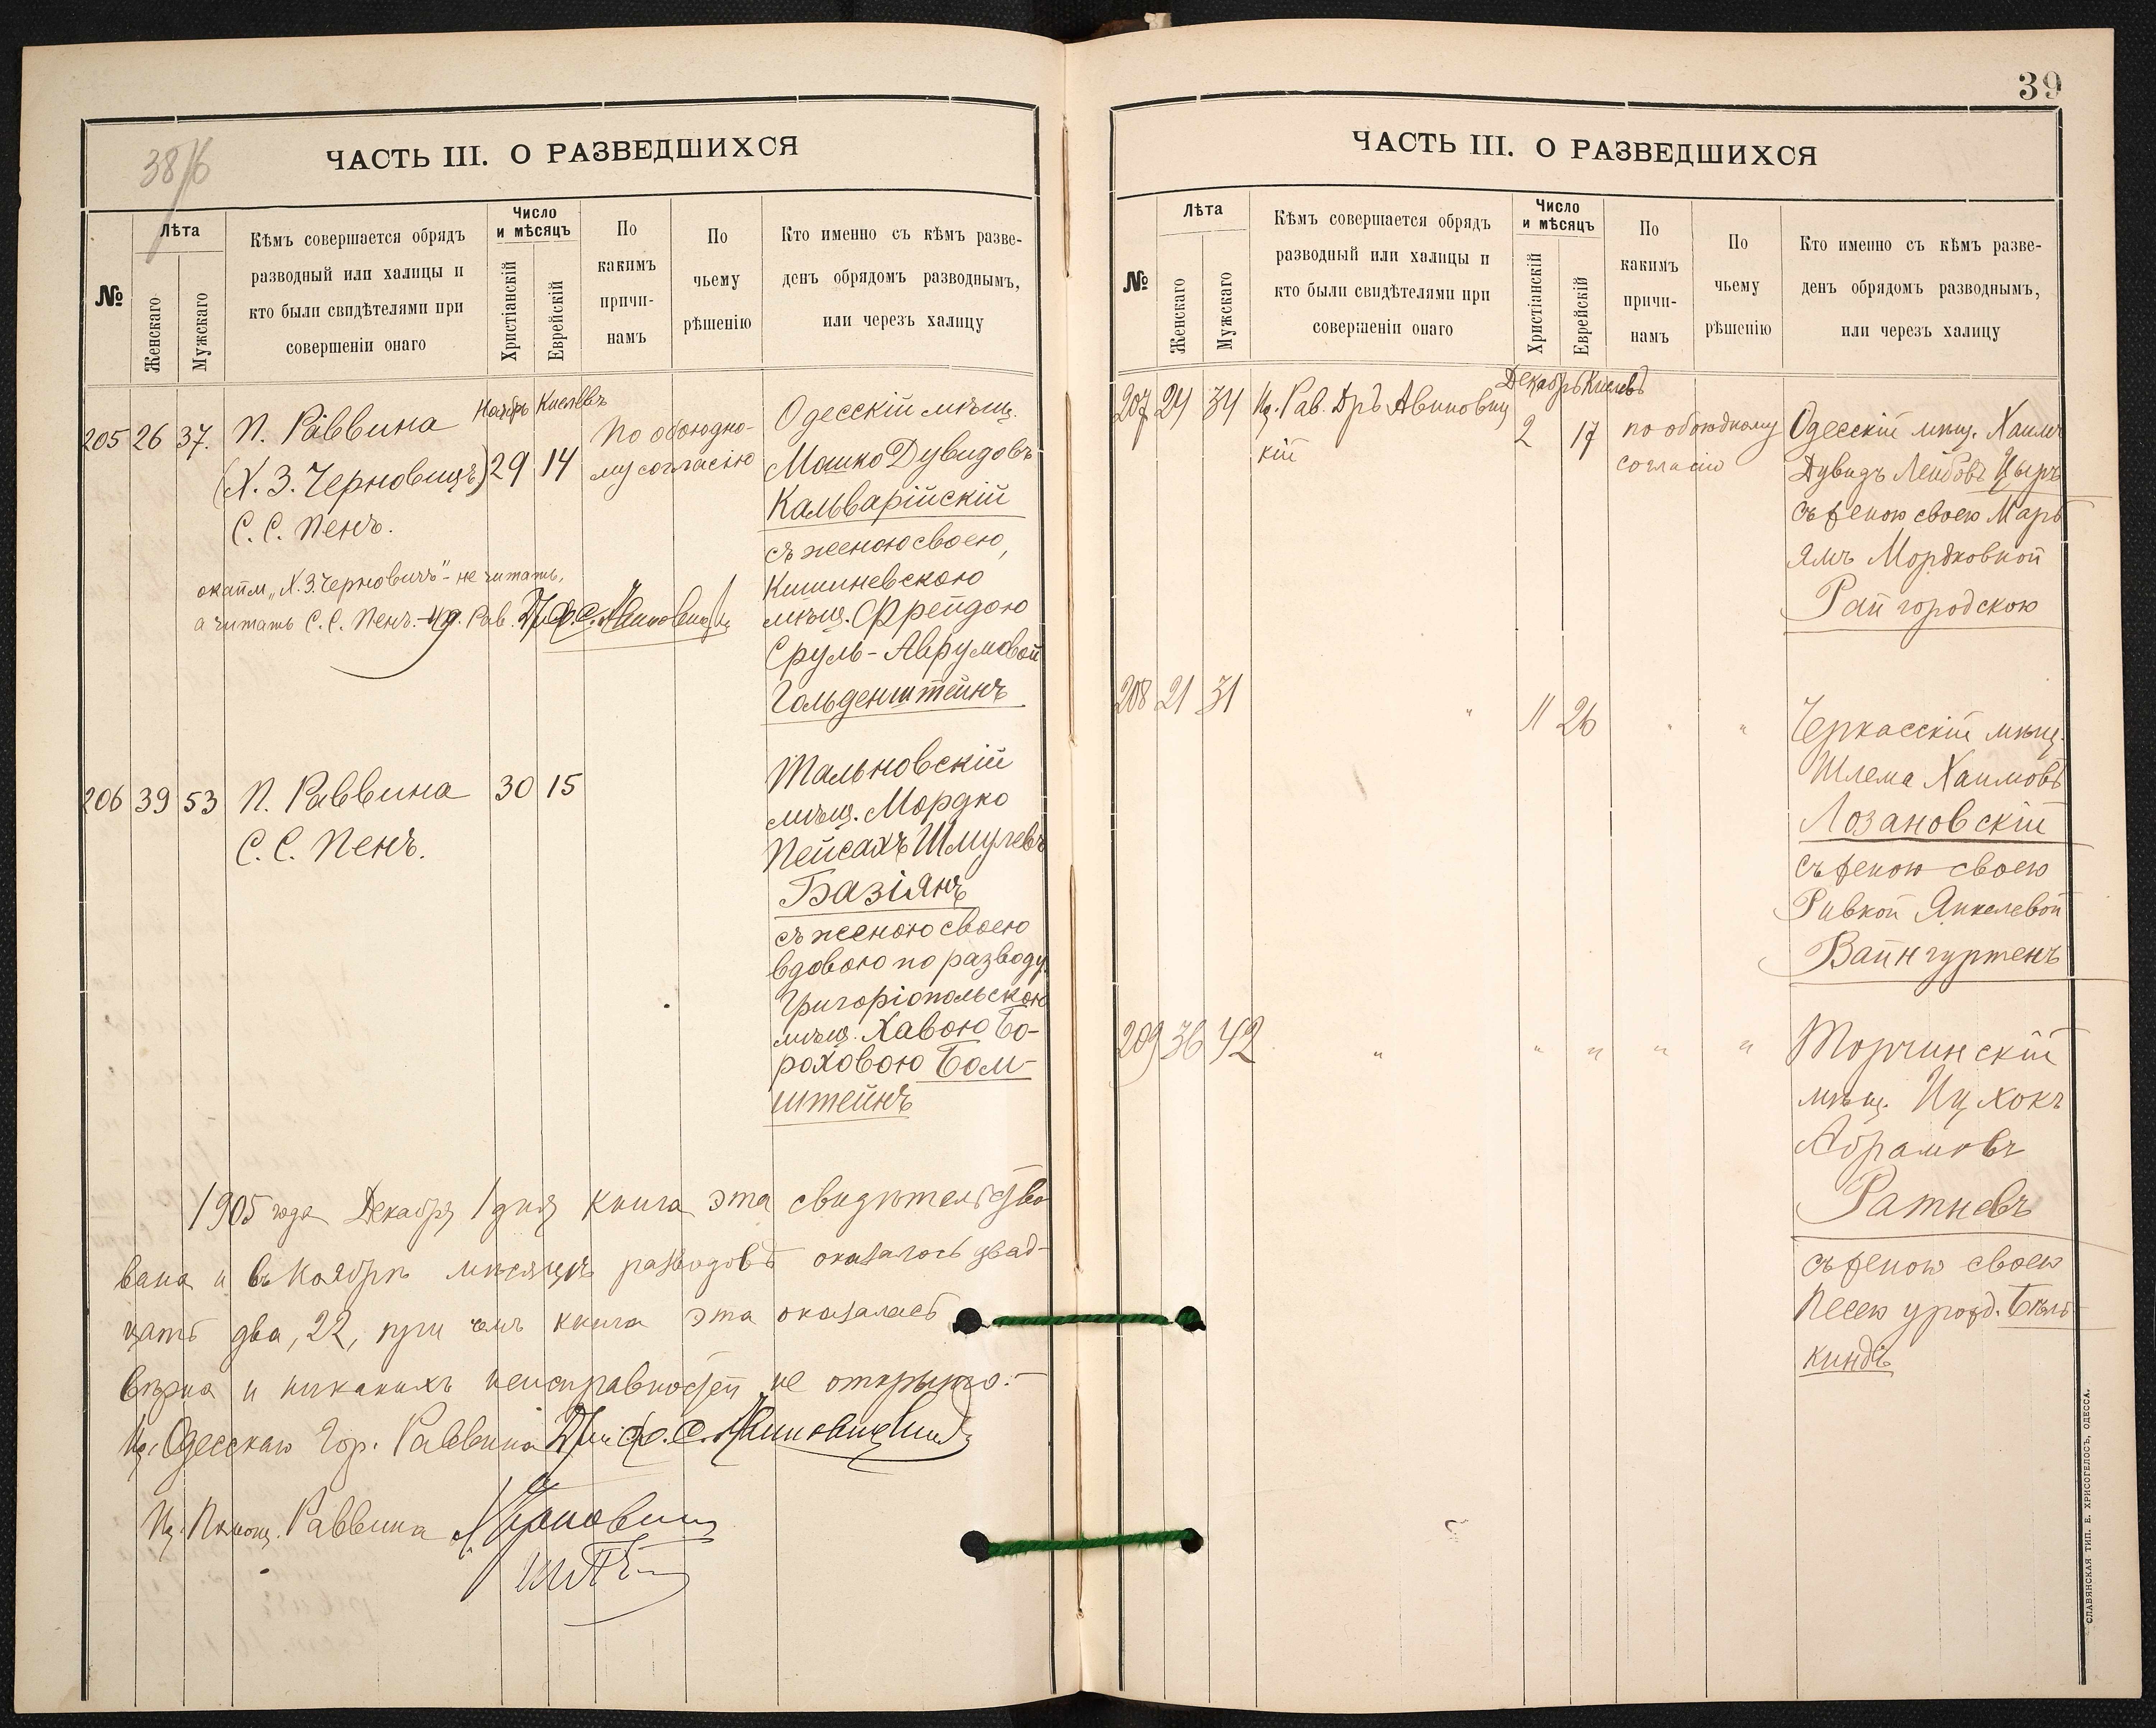 38/6
ЧАСТЬ III. О РАЗВЕДШИХСЯ
№
Лѣта
Женскаго
Мужскаго
Кѣмъ совершается обрядъ
разводный или халицы и
кто были свидѣтелями при
совершеніи онаго
Число
и мѣсяцъ
Христіанскій
Еврейскій
По
какимъ
причи-
намъ
По
чьему
рѣшенію
Кто именно съ кѣмъ разве-
денъ обрядомъ разводнымъ,
или черезъ халицу
205 26 37.
П. Раввина
(Х. З. Черновицъ)
С. С. Пенъ.
Ноябрь Кислевъ
29 14
По обоюдно-
му согласію
Одесскій мѣщ.
Мошко Дувидовъ
Кальварійскій
съ женою своею,
Кишиневскою
мѣщ. Фрейдою
Сруль-Аврумовой
Гольденштейнъ
"Х. З. Черновичъ" - не читать,
а читать С. С. Пенъ. - Ид. Рав.
206 39 53
П. Раввина
С. С. Пенъ.
30 15
Тальновскій
мѣщ. Мордко
Пейсахъ Шмулевъ
Базіянъ
съ женою своею
вдовою по разводу
Григоріопольскою
мѣщ. Хавою Бо-
роховою Бом-
штейнъ
1905 года Декабря 1 дня книга эта свидѣтельство
вана и въ Ноябрѣ мѣсяцѣ разводовъ оказалось двад-
цать два, 22, при чемъ книга эта оказалась
вѣрна и никакихъ неисправностей не открыто.-
Ид. Одесскаго Гор. Раввина
Ид. Помощ. Раввина
39
ЧАСТЬ III. О РАЗВЕДШИХСЯ
№
Лѣта
Женскаго
Мужскаго
Кѣмъ совершается обрядъ
разводный или халицы и
кто были свидѣтелями при
совершеніи онаго
Число
и мѣсяцъ
Христіанскій
Еврейскій
По
какимъ
причи-
намъ
По
чьему
рѣшенію
Кто именно съ кѣмъ разве-
денъ обрядомъ разводнымъ,
или черезъ халицу
207 24 34
Ид. Рав. Дръ Авиновиц
кій
Декабрь Кислевъ
2 17
по обоюдному
согласію
Одесскій мѣщ. Хаимъ
Дувидъ Лейбовъ Цыръ
съ женою своею Марь
ямъ Мордковной
Райгородскою
208 21 31
" 11 26 " "
Черкасскій мѣщ.
Шлема Хаимовъ
Лозановскій
съ женою своею
Ривкой Янкелевой
Вайнгуртенъ
209 36 42
" " " " "
Торчинскій
мѣщ. Ицхокъ
Абрамовъ
Ратневъ
съ женою своею
Песею урожд. Бѣль
киндъ
СЛАВЯНСКАЯ ТИП. Е. ХРИСОГЕЛОСЪ, ОДЕССА.